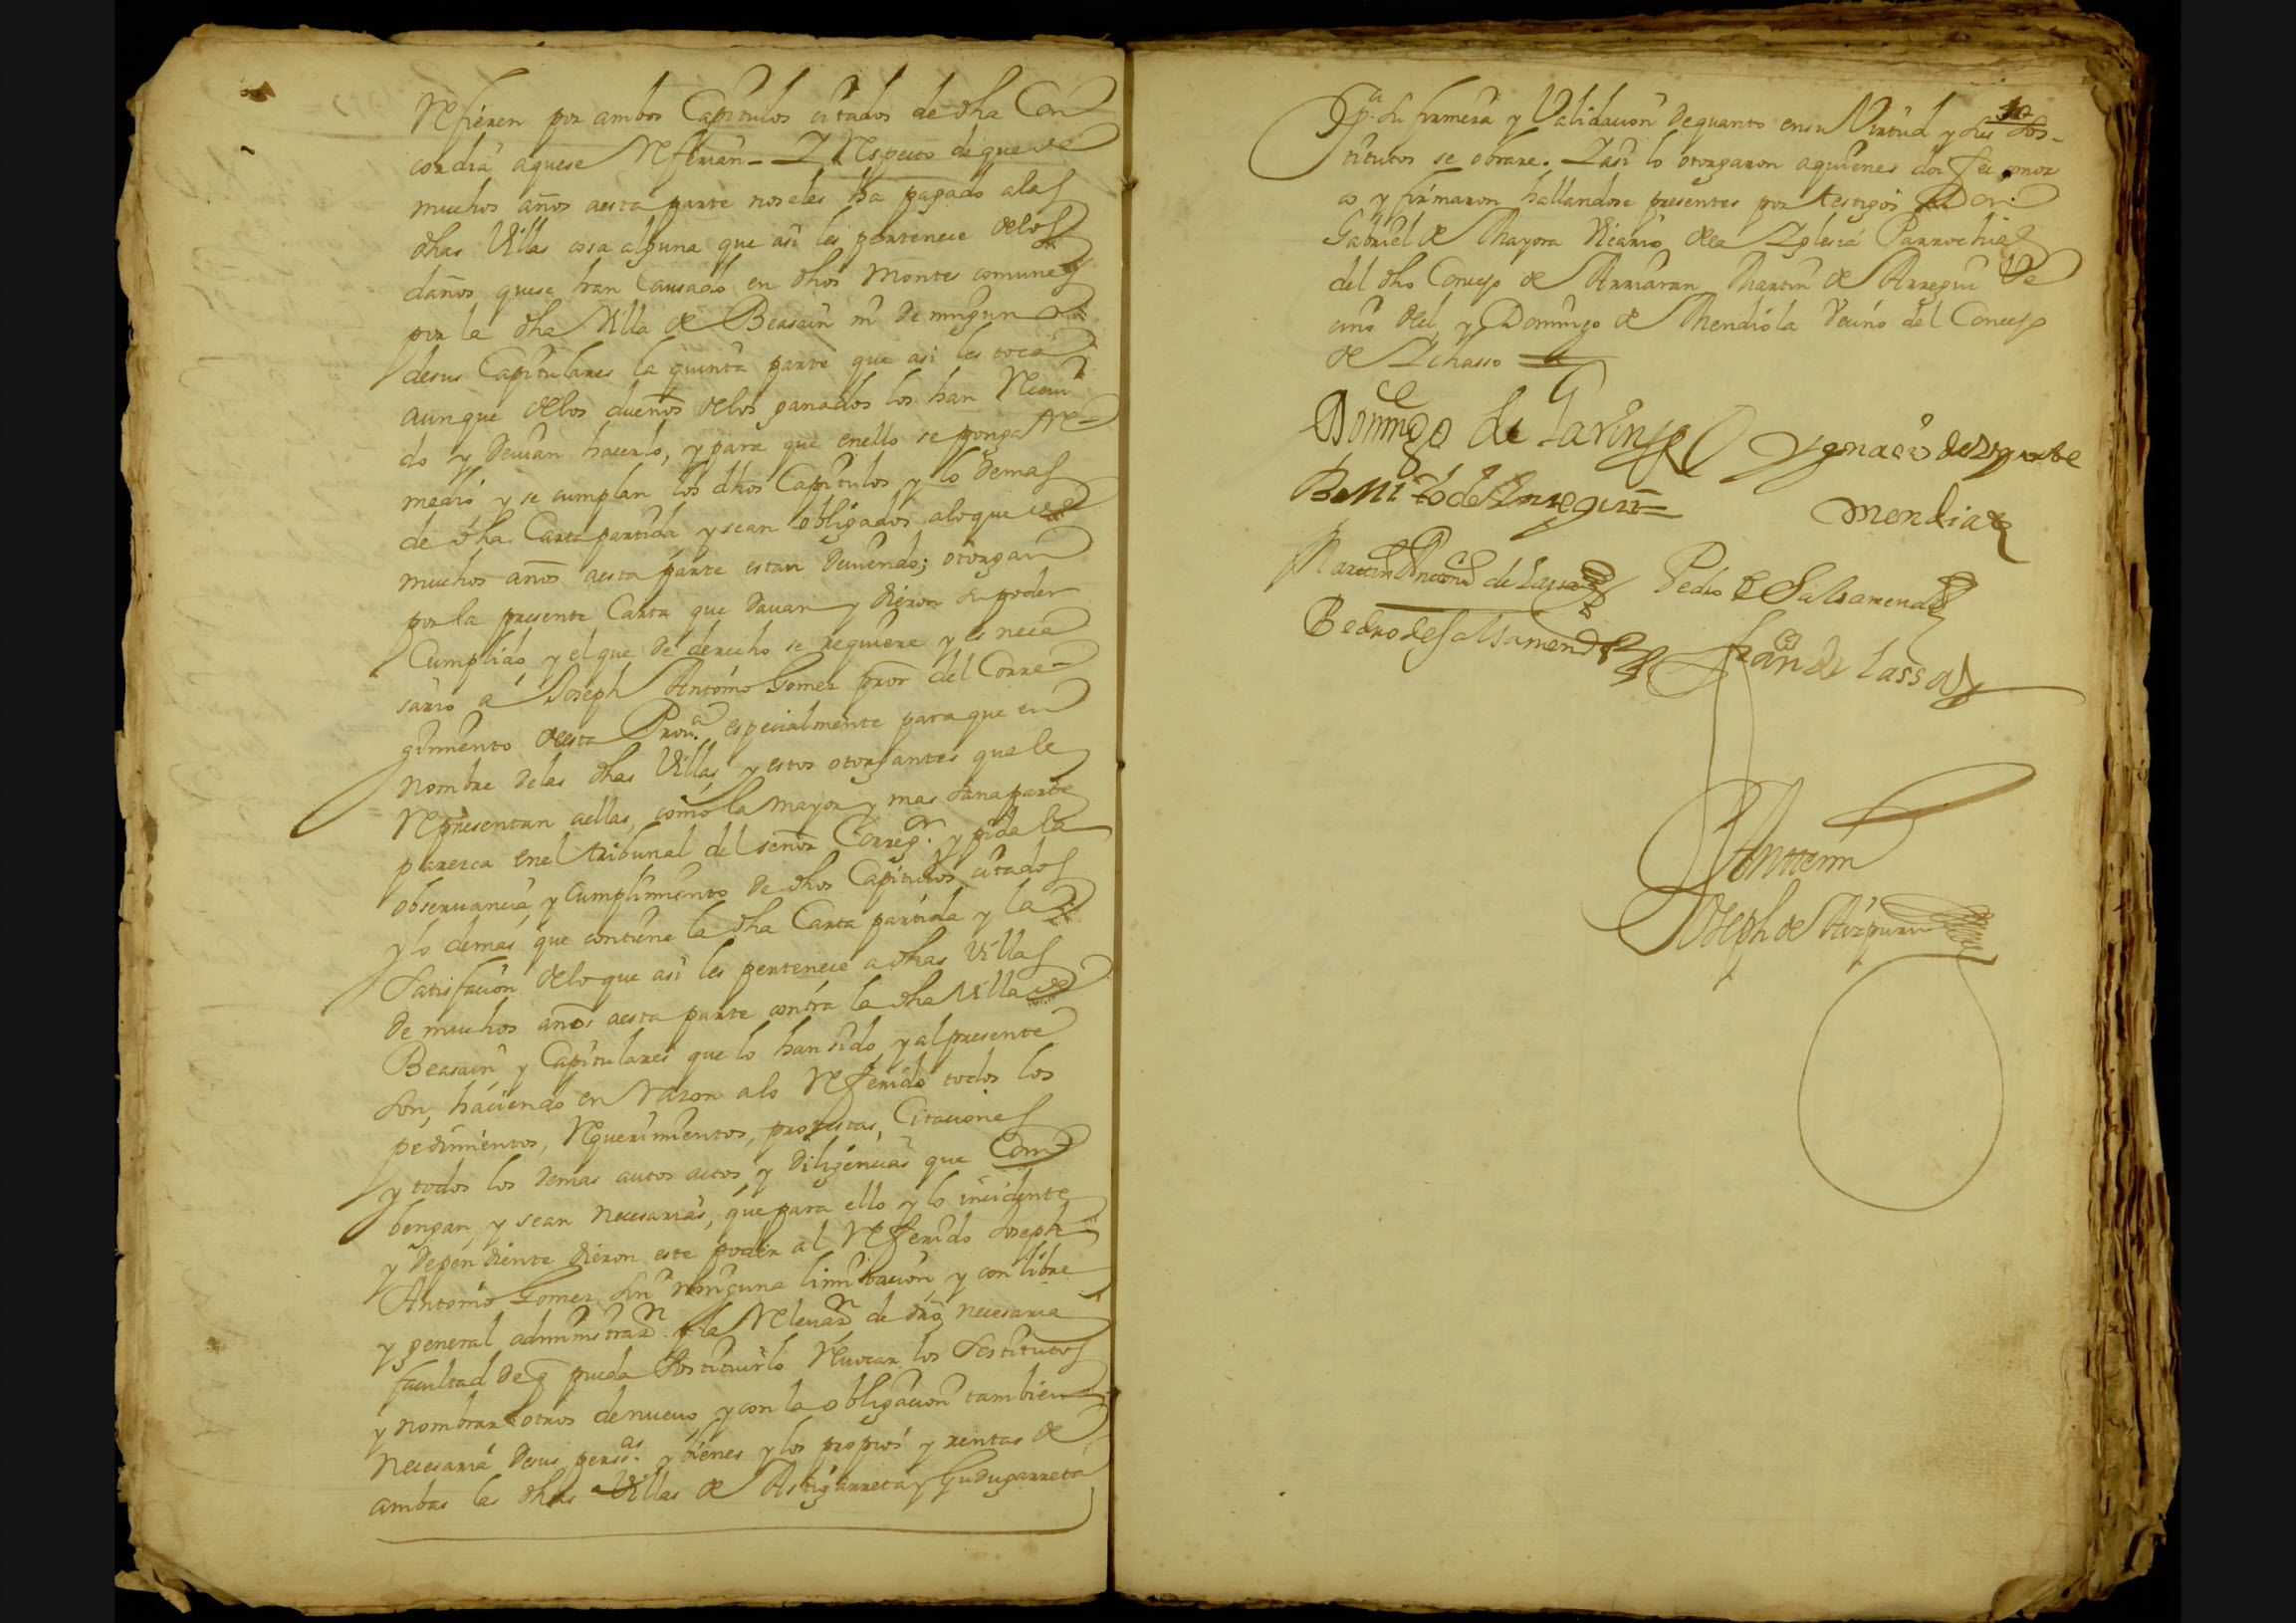 Refieren por ambos Capitulos citados de dha Con
cordia aquese Referian - Y Respecto de que de
muchos años aesta parte noseles ha pagado alas
dhas Villas cosa alguna que asi les pertenece delos
daños quese han Causado en dhos Montes comunes
por la dha Villa de Beasain ni de ningun
desus Capitulares la quinta parte que asi les toca
aunque delos dueños delos ganados los han Recivi
do y devian hacerlo, y para que enello se ponga Re-
medio y se cumplan los dhos Capitulos y lo demas
de dha. Carta partida y sean obligados aloque de
muchos años aesta parte estan deviendo; otorgan
por la presente Carta que davan y dieron su poder
Cumplido y el que de derecho se requiere y es nece
sario a Joseph Antonio Gomez pror del Corre-
gimiento desta Prova. especialmente paraque en
nombre delas dhas Villas y estos otorgantes quele
Representan aellas, como la mayor y mas sana parte
parezca enel tribunal del señor Corregr. y pida la
observancia y Cumplimiento de dhos Capitulos citados
y lo demas que contiene la dha Carta partida y la
Satisfacion delo que asi les pertenece a dhas Villas
de muchos años aesta parte contra la dha Villa de
Beasain y Capitulares que lo han sido y al presente
son, haciendo en razon alo Referido todos los
pedimientos, Requerimientos, protestas, Citaciones
y todos los demas autos actos y diligencias que Com
bengan y sean necesarias, que para ello y lo incidente
y dependiente dieron este poder al Referido Joseph
Antonio Gomez sin ninguna limitacion y con libre
y general administrazn. y la Relevazn de dro necesaria
facultad de q pueda Sostituirlo Revocar los Sostitutos
y nombrar otros denuevo y con la obligacion tambien
necesaria desus persas. y bienes y los propios y rentas de
ambas las dhas Villas de Astigarreta y Gudugarreta
pa. su firmeza y Validacion dequanto ensu Virtud y sus Sos-
titutos se obrare. Y asi lo otorgaron aquienes doi fee conoz
co y firmaron hallandose presentes por testigos Don
Gabriel de Mayora Vicario dela Yglesia Parrochial
del dho Concejo de Arriaran Martin de Arregui Ve
cino del y Domingo de Mendiola Vecino del Concejo
de Ychasso
Domingo de
Ygnacio de Ugarte
mendia
Benito de Arregui
Martin Antonio de Lassa
Pedro de Salsamendi
Pedro de Salsamendi
Franco de Lassa
Antte mi
Joseph de Aizpuru